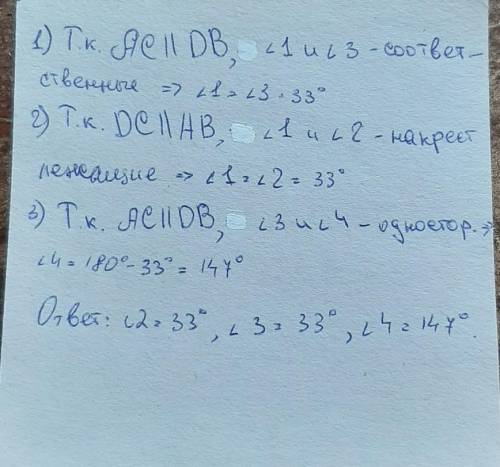 1) Т.к. AC || DB, ∠1 и ∠3 - соответ-
ственные => ∠1 = ∠3 = 33°
2) Т.к. DC || AB, ∠1 и ∠2 - накрест
лежащие => ∠1 = ∠2 = 33°
3) Т.к. AC || DB, ∠3 и ∠4 - одностор. =>
∠4 = 180° - 33° = 147°
Ответ: ∠2 = 33°, ∠3 = 33°, ∠4 = 147°.